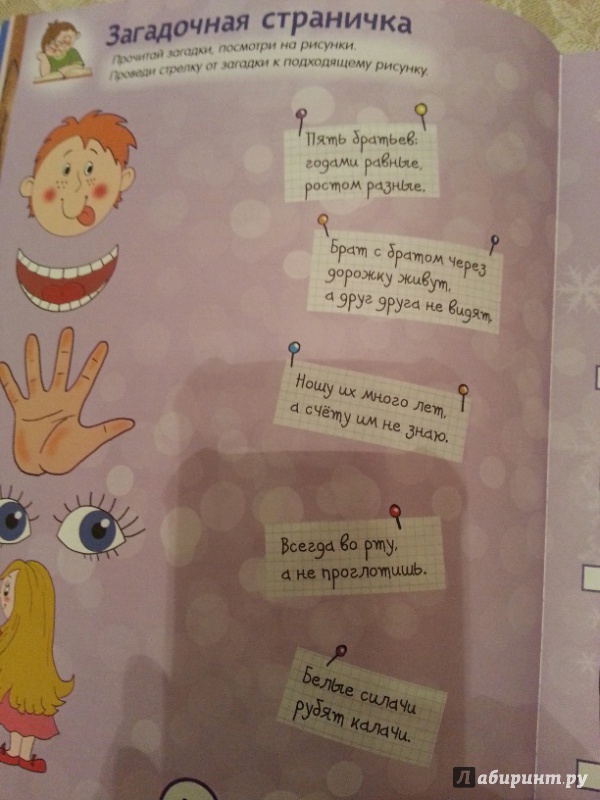 Загадочная страничка
Прочитай загадки, посмотри на рисунки.
Проведи стрелку от загадки к подходящему рисунку.
Пять братьев:
годами равные,
ростом разные.
Брат с братом через
дорожку живут,
а друг друга не видят.
Ношу их много лет,
а счёту им не знаю.
Всегда во рту,
а не проглотишь.
Белые силачи
рубят калачи.
Лабиринт.ру